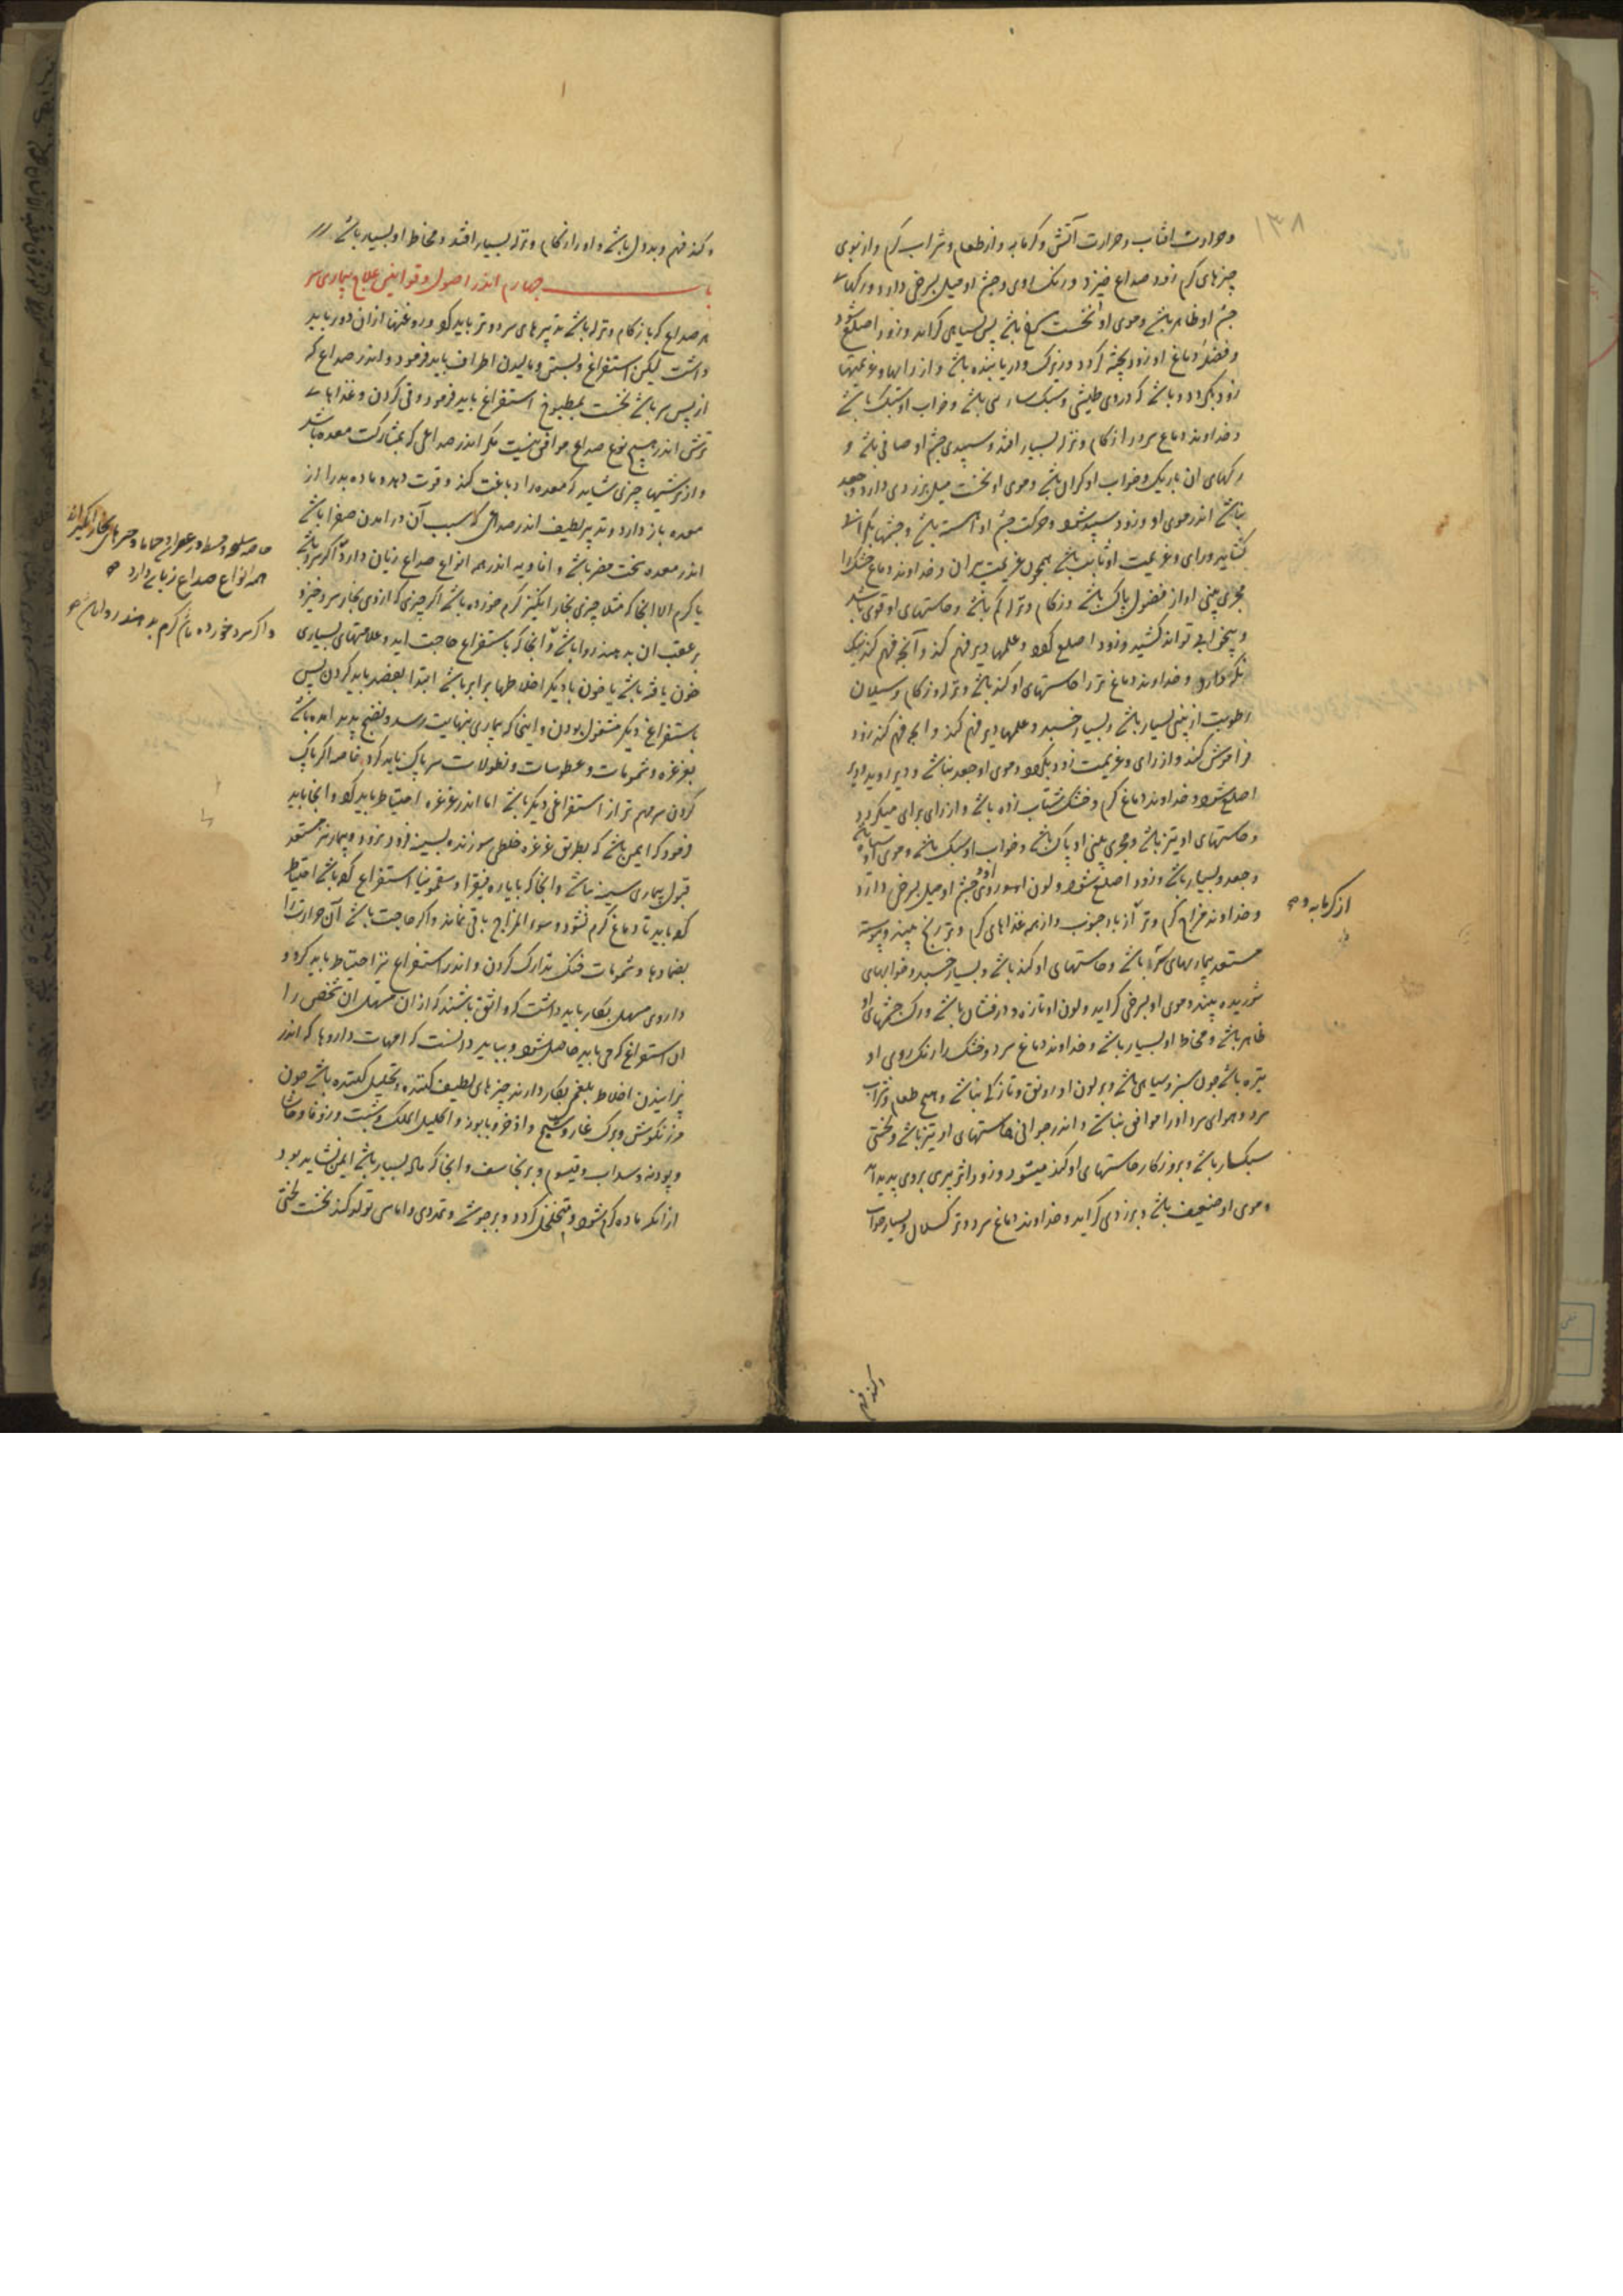 ۱۳۸
و حرارت افتاب و حرارت آتش و کرمابه و از طعام و شراب کرم و از بوی
چیزهای کرم زود صداع خیزد و رنک روی و چشم او میل بسرخی دارد و رکهاء
چشم او ظاهر باشد و موی او نخست سرخ باشد پس بسیاهی کراید و زود اصلع شود
و فضلۀ دماغ او زود پخته کردد و زیرک و دریابنده باشد و از رایها و عزیمتها
زود بکردد و باشد که در وی طیشی و سبک ساری باشد و خواب او سبک باشد
و خداوند دماغ سرد را زکام و نزله بسیار افتد و سپیدی چشم او صافی باشد و
رکهای ان باریک و خواب او کران باشد و موی او نخست میل بزردی دارد و جعد
نباشد اندر موی او و زود سپید شود و حرکت چشم او آهسته باشد و چشمها
کشاید و رای و عزیمت او ثابت باشد همچون عزیمت پیران و خداوند دماغ خشک را
مجری بینی او از فضول پاک باشد و زکام و نزله کم باشد و حاستهای او قوی باشد
و بیخوابی تواند کشید و زود اصلع کردد و علمها دیر فهم کند و آنچه فهم کند نیک
نکه دارد و خداوند دماغ تر را حاستهای او کند باشد و نزله و زکام و سیلان
رطوبت از بینی بسیار باشد و بسیار خسبد و علمها دیر فهم کند و انچه فهم کند زود
فراموش کند و از رای و عزیمت زود بکردد و موی او جعد نباشد و دیر
اصلع شود و خداوند دماغ کرم و خشک شتاب زده باشد و از رای برای میکردد
و حاستهای او تیز باشد و مجری بینی او پاک باشد و خواب او سبک باشد و موی او سیاه باشد
و جعد و بسیار باشد و زود اصلع شود و لون او و روی و چشم او میل بسرخی دارد
و خداوند مزاج کرم و تر از باد جنوب و از همه غذاهای کرم و تر رنج بیند و پیوسته
مستعد بیماریهای سر باشد و حاستهای او کند باشد و بسیار خسبد و خوابهای
شوریده بیند و موی او بسرخی کراید و لون او تازه و درفشان باشد و رک چشمهای او
ظاهر باشد و مخاط او بسیار باشد و خداوند دماغ سرد و خشک را رنک روی او
تیره باشد چون سبز و سیاهی باشد و بر لون او رونق و تازکی نباشد و هیچ طعام و شراب
سرد و هوای سرد او را موافق نباشد و اندر جوانی حاستهای او تیز باشد و لختی
سبکسار باشد و بروزکار حاستهای او کند میشود و زود اثر پیری بر وی پدید اید
و موی او ضعیف باشد و بزردی کراید و خداوند دماغ سرد و تر کسلان و بسیار خواب
از کرمابه و
و کند فهم
و کند فهم و بددل باشد و او را زکام و نزله بسیار افتد و مخاط او بسیار باشد
باب چهارم اندر اصول و قوانین علاج بیماری سر
هر صداع که با زکام و نزله باشد تدبیرهای سرد و تر باید کرد و روغنها از ان دور باید
داشت لیکن استفراغ و بستن و مالیدن اطراف باید فرمود و اندر صداع که
از پس سر باشد نخست بمطبوخ استفراغ باید فرمود و قی کردن و غذاهاء
ترش اندر هیچ نوع صداع موافق نیست مکر اندر صداعی که بمشارکت معده باشد
و از ترشیها چیزی شاید که معده را دباغت کند و قوت دهد و ماده بد را از
معده باز دارد و تدبیر لطیف اندر صداعی که سبب آن در امدن صفرا باشد
اندر معده سخت مضر باشد و افاویه اندر همه انواع صداع زیان دارد اکر سرد باشد
یا کرم الا انجا که مثلا چیزی بخار انکیز کرم خورده باشد اکر چیزی که از وی بخار سرد خیزد
بر عقب ان بدهند روا باشد و آنجا که باستفراغ حاجت اید و علامتهای بسیاری
خون یافته باشد یا خون با دیکر اخلاطها برابر باشد ابتدا بفصد باید کردن پس
باستفراغ دیکر مشغول بودن و اینجا که بیماری بنهایت رسد و نضج پدید امده باشد
بغرغره و شمومات و عطوسات و نطولات سر پاک باید کرد خاصه اکر پاک
کردن سر مهم تر از استفراغ دیکر باشد اما اندر غرغره احتیاط باید کرد و انجا باید
فرمود که ایمن باشد که بطریق غرغره خلطی سوزنده بسینه فرود نرود و بیمار نیز مستعد
قبول بیماری سینه نباشد و انجا که بایاره فیقرا و سقمونیا استفراغ کرده باشد احتیاط
کرد باید تا دماغ کرم نشود و سوء المزاج باقی نماند و اکر حاجت باشد آن حرارت را
بضمادها و شمومات خنک تدارک کردن و اندر استفراغ نیز احتیاط باید کرد و
داروی مسهل بکار باید داشت که واثق باشند که از ان مسهل ان شخص را
ان استفراغ که می باید حاصل شود و بباید دانست که امهات داروها که اندر
پزانیدن اخلاط بلغمی بکار دارند چیزهای لطیف کننده و تحلیل کننده باشد چون
مرزنکوش و برک غار و شیح و اذخر و بابونه و اکلیل الملک و شبت و زوفا و حاشا
و پودنه و سداب و قیسوم و برنجاسف و انجا که ماده بسیار باشد ایمن نشاید بود
از انکه ماده کرم شود و متخلخل کردد و بر جوشد و تمددی و اماسی تولد کند نخست لختی
همه انواع صداع زیان دارد
و اکر سرد خورده باشد کرم بدهند روا باشد